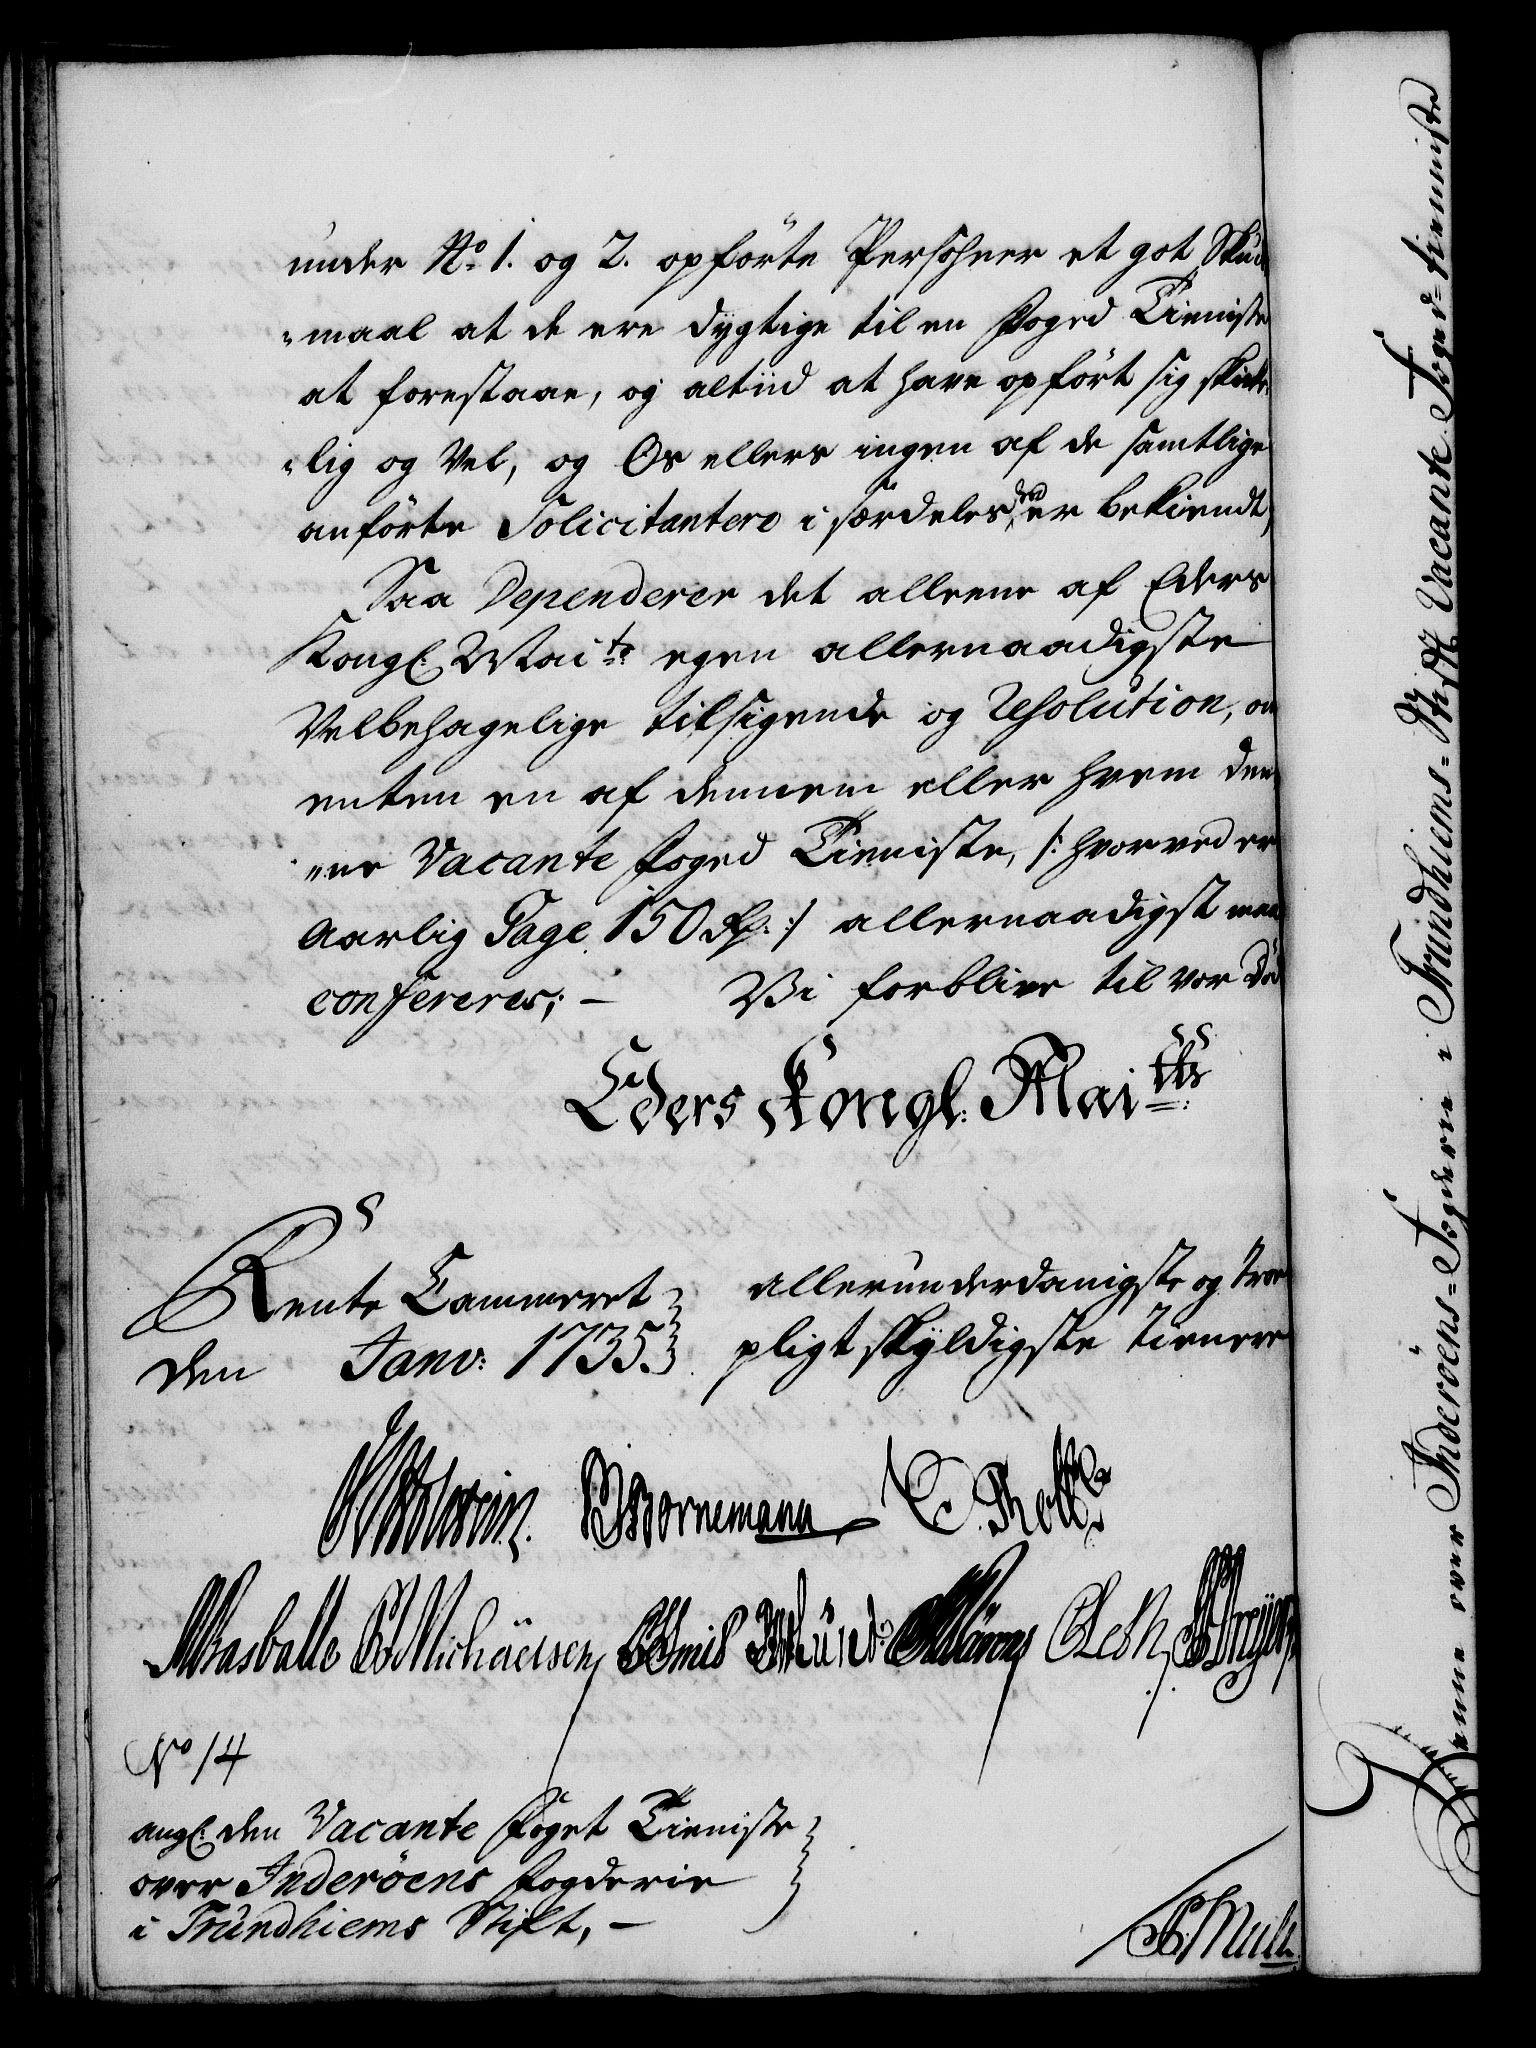 under No 1. og 2. opförte Persohner et got Skuds
"maal at de ere dygtige til en Foged Tieniste
at forestaae, og altiid at have opfört sig skick
"lig og Vel, og Os ellers ingen af de samtlige
anförte Solicitantere i særdeleshed er bekiendt,
Saa Dependerer det alleene af Eders
Kongl: Maits egen allernaadigste
Velbehagelige tilsigende og Resolution, om
enten en af dennem eller hvem den
"ne Vacante Foged Tieniste, /: hvorved er
Aarlig Gage 150 Rd: :/ allernaadigst maa
confereres; – Vi forblive til vor Död
Eders Kongl. Maitts
Rente Cammeret allerunderdanigste og troe
den Janv: 1735. pligtskyldigste tienere
Bornemann
Michäelsen
No 14
angl: den Vacante Foget Tieniste
over Inderöens Fogderie
i Trundhiems Stift, –
Denne over Inderöens-Fogderie i Trundhiems-Stift Vacante Foged-tienniste